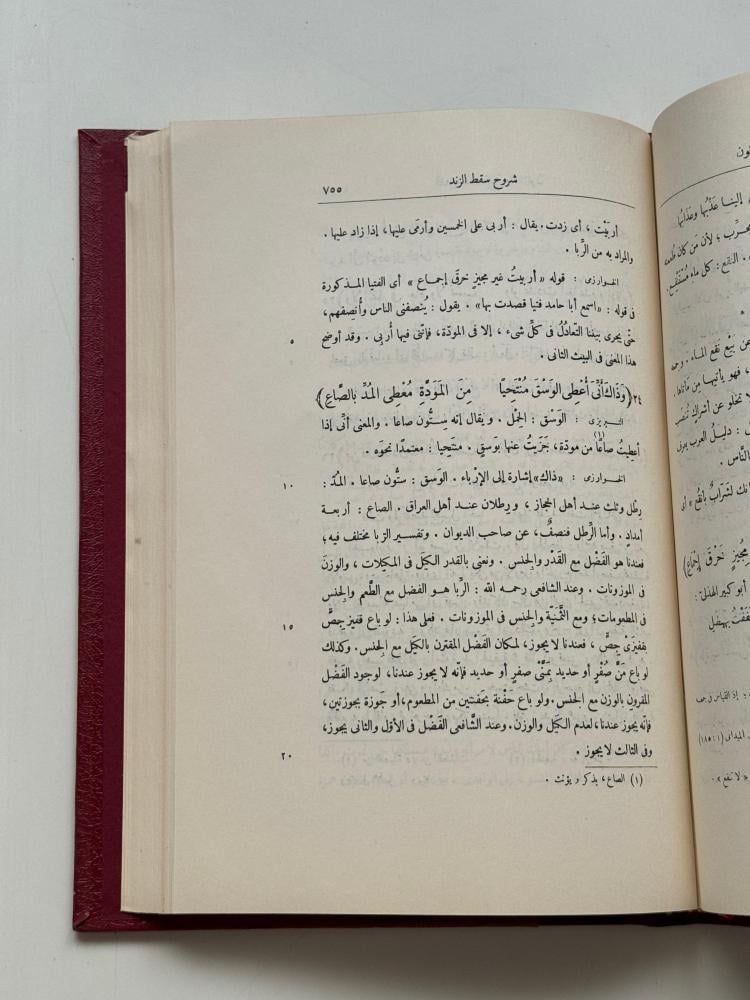 شروح سقط الزند ٧٥٥
أربَيْت ، أى زدت. يقال : أربى على الخمسين وأرمَى عليها ، إذا زاد عليها .
والمراد به من الرِّبا .
الخوارزمى : قوله « أربيتُ غير مجيزٍ خرقَ إجماع » أى الفتيا المذكورة
فى قوله : «اسمع أبا حامد فتيا قصدت بها» . يقول : يُنصفنى الناس وأُنصِفهم ،
حتَّى يجرى بيننا التّعادُل فى كلّ شىء ، إلا فى المودّة، فإنّنى فيها أُربِى . وقد أوضح ٥
هذا المعنى فى البيت الثانى .
٢٤ (وَذَاكَ أَنِّى أُعْطِى الوَسْقَ مُنْتَحِيًا مِنَ المَوَدَّةِ مُعْطِى المُدِّ بالصَّاعِ)
التبريزى : الوَسْق : الحِمْل . ويقال إنه سِتُّون صاعا . والمعنى أنِّى إذا
أعطِيتُ صاعًا(١) من مودّة، جَزَيتُ عنها بوَسقٍ . منتحِيا : معتمدًا نحوَه .
الخوارزمى : «ذاك» إشارة إلى الإرْباء . الوَسق : ستُّون صاعا . المُدّ : ١٠
رِطْل وثلث عند أهل الحجاز ، ورطلان عند أهل العراق . الصاع : أربعة
أمدادٍ . وأما الرِّطل فنصفٌ، عن صاحب الديوان . وتفسير الرّبا مختلف فيه؛
فعندنا هو الفَضْل مع القَدْر والجنس . ونعنى بالقدر الكيلَ فى المكيلات ، والوزنَ
فى الموزونات . وعند الشافعى رحمه الله : الرِّبا هو الفضل مع الطَّعم والجنس
فى المطعومات؛ ومع الثَّمَنيّة والجنس فى الموزونات . فعلى هذا : لو باع قفيزَ جِصٍّ ١٥
بقفيزَىْ جِصٍّ ، فعندنا لا يجوز، لمكان الفَضْل المقترن بالكَيْل مع الجنس. وكذلك
لو باع مَنَّ صُفْرٍ أو حديد بمَنَّىْ صفرٍ أو حديد فإنّه لا يجوز عندنا، لوجود الفَضْل
المقرون بالوزن مع الجنس. ولو باع حَفْنة بحَفنتين من المطعوم، أو جَوزة بجوزتين،
فإنّه يجوز عندنا، لعدم الكَيْل والوزن. وعند الشَّافعى الفَضْل فى الأوّل والثانى يجوز،
وفى الثالث لا يجوز . ٢٠
(١) الصاع، يذكر ويؤنث .
إلينا عَذْبُها وعَذَابُها
النقع : كل ماء مُسْتَنْقِع
عن بَيْع نَقع الماء
: دليل العرب
الناس .
مُجِيزٍ خَرْقَ إِجْمَاعِ)
أبو كبير الهذلىّ :
الميدانى (١ : ١٨٥)